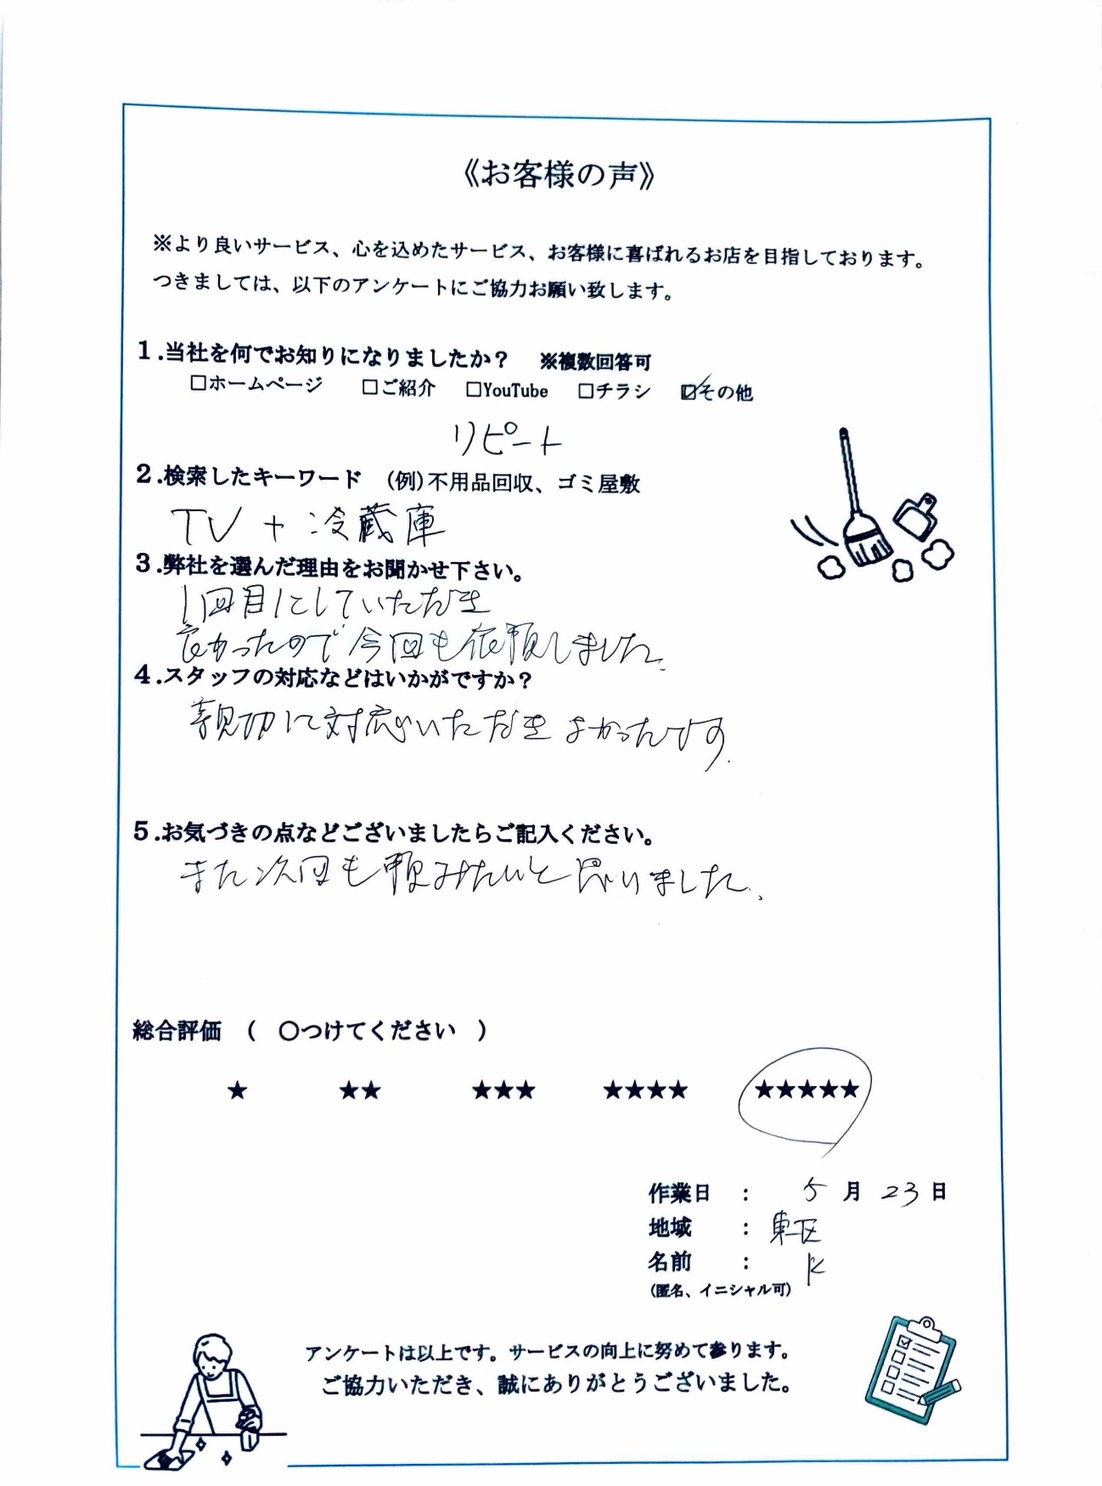 《お客様の声》
※より良いサービス、心を込めたサービス、お客様に喜ばれるお店を目指しております。
つきましては、以下のアンケートにご協力お願い致します。
1.当社を何でお知りになりましたか？ ※複数回答可
□ホームページ □ご紹介 □YouTube □チラシ ☑その他
リピート
2.検索したキーワード (例)不用品回収、ゴミ屋敷
TV + 冷蔵庫
3.弊社を選んだ理由をお聞かせ下さい。
1回目にしていただき
良かったので今回も依頼しました。
4.スタッフの対応などはいかがですか？
親切に対応いただきよかったです。
5.お気づきの点などございましたらご記入ください。
また次回も頼みたいと思いました。
総合評価 （ ○つけてください ）
★ ★★ ★★★ ★★★★ ★★★★★
作業日 : 5月23日
地域 : 東区
名前 : K
(匿名、イニシャル可)
アンケートは以上です。サービスの向上に努めて参ります。
ご協力いただき、誠にありがとうございました。